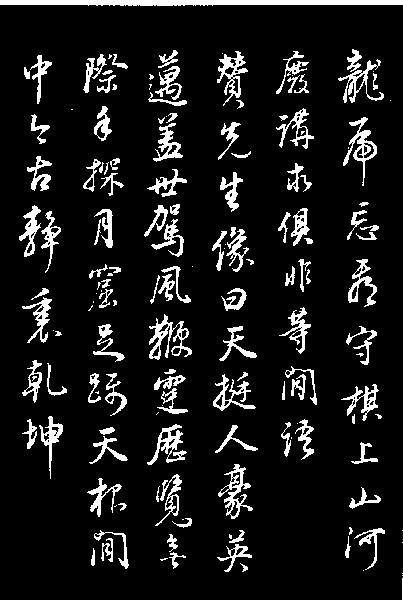 龍虎忘看守棋上山河
廢講求俱非等閒語
贊先生像曰天挺人豪英
邁蓋世駕風鞭霆歷覽無
際手探月窟足躡天根閒
中今古靜裏乾坤